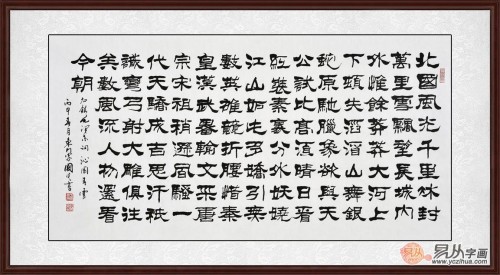 北國風光千里冰封
萬里雪飄望長城內
外惟餘莽莽大河上
下頓失滔滔山舞銀
蛇原馳臘象欲與天
公試比高須晴日看
紅裝素裹分外妖嬈
江山如此多嬌引無
數英雄競折腰惜秦
皇漢武略輸文采唐
宗宋祖稍遜風騷一
代天驕成吉思汗祇
識彎弓射大雕俱往
矣數風流人物還看
今朝
右録毛澤東詞沁園春雪
丙申年
易从字画
www.yczihua.com